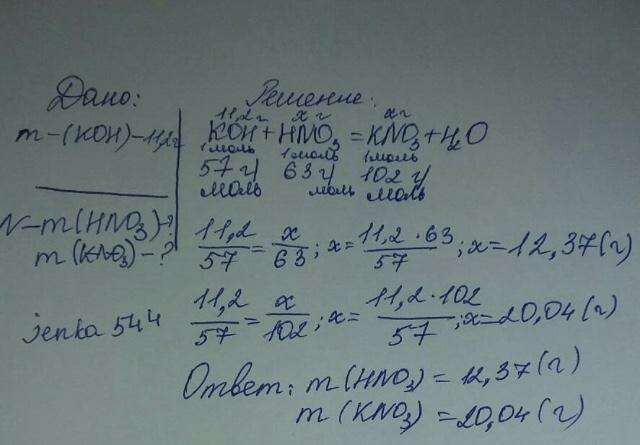 Дано:
m-(KOH)-11,2г
N-m(HNO₃)-?
m(KNO₃)-?
jenka 544
Решение:
11,2г x г x г
KOH+HNO₃=KNO₃+H₂O
1моль 1моль 1моль
57 г/моль 63 г/моль 102 г/моль
11,2/57=x/63; x=11,2·63/57; x=12,37(г)
11,2/57=x/102; x=11,2·102/57; x=20,04(г)
Ответ: m(HNO₃)=12,37(г)
m(KNO₃)=20,04(г)